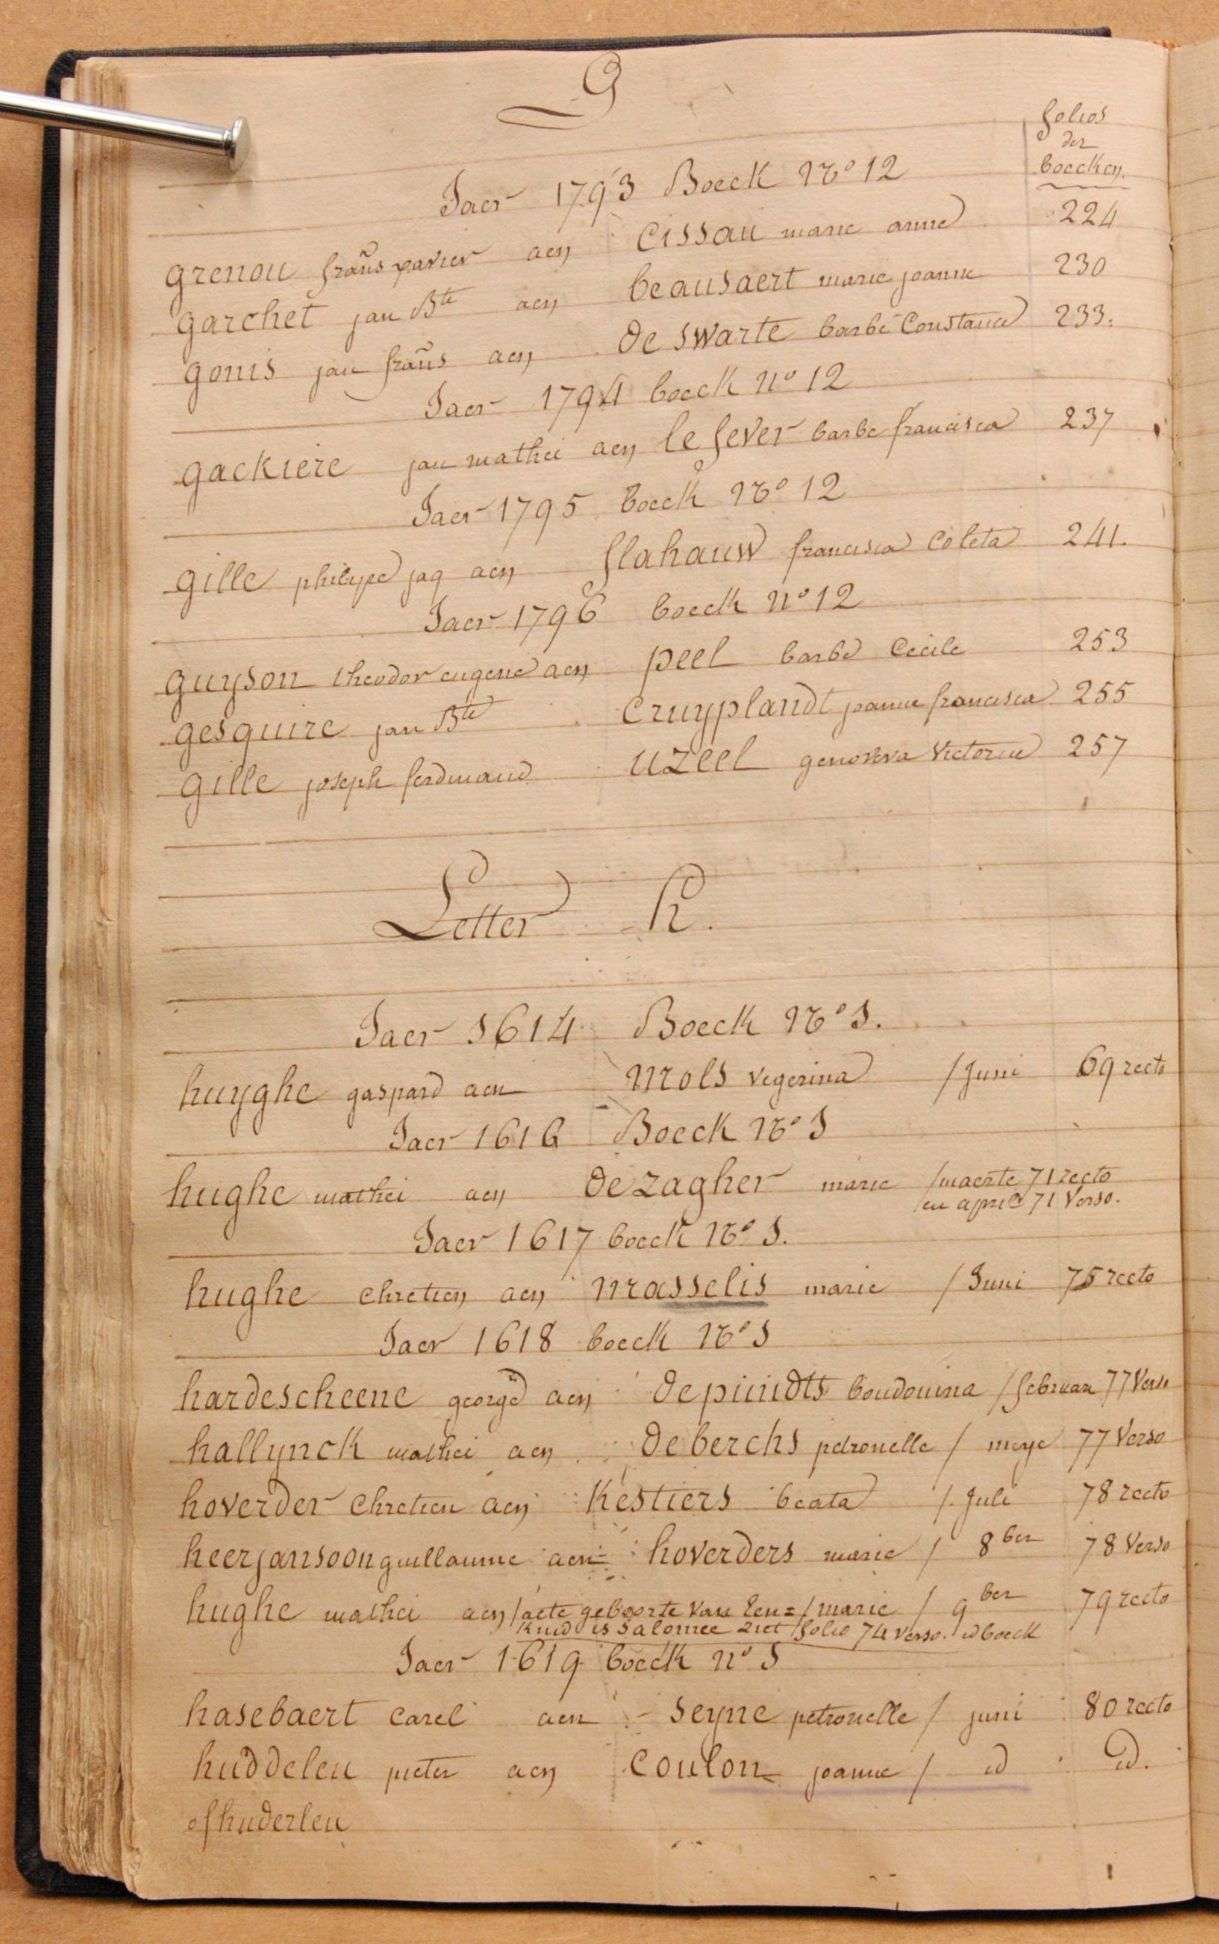 G
folios
der
boecken.
Jaer 1793 Boeck No 12
grenou frañs xavier aen cissau marie anne 224
garchet jan Bte aen beausaert marie joanne 230
gonis jan frañs aen de swarte barbe Constance 233.
Jaer 1794 boeck no 12
gackiere jan mathei aen le fever barbe francisca 237
Jaer 1795 boeck No 12
gille philipe jaq aen flahauw francisca Coleta 241.
Jaer 1796 boeck no 12
guyson theodor eugene aen peel barbe Cecile 253
gesquire jan Bte cruyplandt joanne francisca 255
gille joseph ferdinand uzeel genoveva Victorine 257
Letter h.
Jaer 1614 Boeck No 1.
huyghe gaspard aen mols vegerina / Juni 69 recto
Jaer 1616 Boeck No 1
hughe mathei aen de zagher marie / maerte 71 recto
/ en april 71 Verso.
Jaer 1617 boeck No 1.
hughe chretien aen masselis marie / Juni 75 recto
Jaer 1618 boeck No 1
hardescheene george aen depuudts boudouina / februar 77 Verso
hallynck mathei aen de berchs petronelle / meye 77 Verso
hoverder Chretien aen Kestiers beata / Juli 78 recto
heerjansoon guillaume aen hoverders marie / 8ber 78 Verso
hughe mathei aen / acte geboorte van / marie / 9ber 79 recto
kind is Salomee ziet folio 74 verso. id boeck
Jaer 1619 boeck no 1
hasebaert carel aen seyne petronelle / juni 80 recto
huddeleu pieter aen coulon joanne / id id.
of huderleu